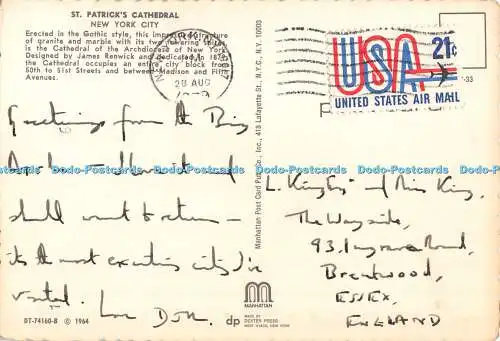 ST. PATRICK'S CATHEDRAL
NEW YORK CITY
Erected in the Gothic style, this imposing structure
of granite and marble with its two towering spires
is the Cathedral of the Archdiocese of New York.
Designed by James Renwick and dedicated in 1879,
the Cathedral occupies an entire city block from
50th to 51st Streets and between Madison and Fifth
Avenues.
Greetings from the Big
Apple – I love it and
shall want to return –
its the most exciting city I've
visited. Love
DT-74160-B © 1964
28 AUG
Manhattan Post Card Pub. Co., Inc., 413 Lafayette St., N. Y. C., N. Y. 10003
MANHATTAN
dp
MADE BY
DEXTER PRESS
WEST NYACK, NEW YORK
USA 21c
UNITED STATES AIR MAIL
L. Kingby and Miss King,
The Wayside,
93, Ingrave Road,
Brentwood,
ESSEX,
ENGLAND
Dodo-Postcards Dodo-Postcards Dodo-Postcards Dodo-Postcards Dodo-Postcards Dodo-Postcards